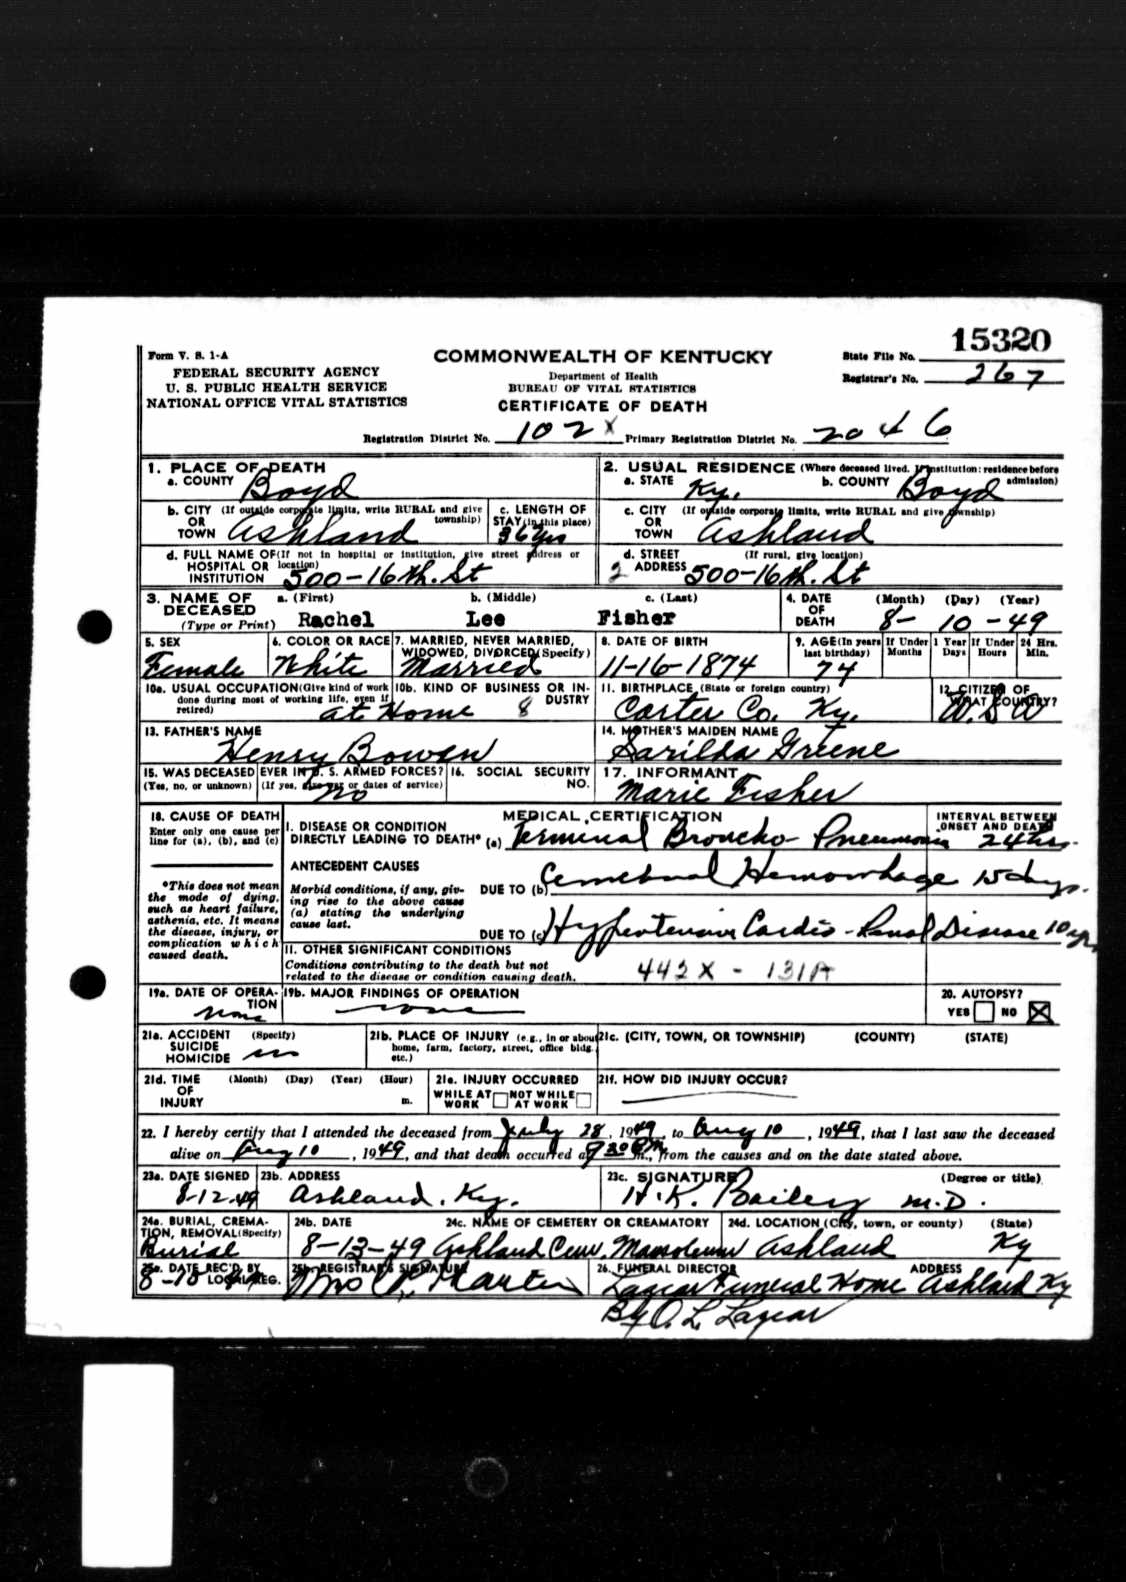 15320
Form V. S. 1-A
COMMONWEALTH OF KENTUCKY
State File No.
FEDERAL SECURITY AGENCY
Department of Health
Registrar's No. 267
U. S. PUBLIC HEALTH SERVICE
BUREAU OF VITAL STATISTICS
NATIONAL OFFICE VITAL STATISTICS
CERTIFICATE OF DEATH
Registration District No. 102 X Primary Registration District No. 2046
1. PLACE OF DEATH
2. USUAL RESIDENCE (Where deceased lived. If institution: residence before admission)
a. COUNTY Boyd
a. STATE Ky. b. COUNTY Boyd
b. CITY (If outside corporate limits, write RURAL and give township) OR TOWN Ashland
c. LENGTH OF STAY (in this place) 36 yrs
c. CITY (If outside corporate limits, write RURAL and give township) OR TOWN Ashland
d. FULL NAME OF (If not in hospital or institution, give street address or location) HOSPITAL OR INSTITUTION 500-16th. St
d. STREET ADDRESS (If rural, give location) 2 500-16th. St
3. NAME OF DECEASED (Type or Print)
a. (First) b. (Middle) c. (Last)
Rachel Lee Fisher
4. DATE OF DEATH (Month) (Day) (Year)
8- 10 -49
5. SEX Female
6. COLOR OR RACE White
7. MARRIED, NEVER MARRIED, WIDOWED, DIVORCED (Specify) Married
8. DATE OF BIRTH 11-16-1874
9. AGE (In years last birthday) 74
If Under 1 Year Months Days
If Under 24 Hrs. Hours Min.
10a. USUAL OCCUPATION (Give kind of work done during most of working life, even if retired) at Home
10b. KIND OF BUSINESS OR INDUSTRY 8
11. BIRTHPLACE (State or foreign country) Carter Co. Ky.
12. CITIZEN OF WHAT COUNTRY? U.S.A
13. FATHER'S NAME Henry Bowen
14. MOTHER'S MAIDEN NAME Sarilda Greene
15. WAS DECEASED EVER IN U. S. ARMED FORCES? (Yes, no, or unknown) (If yes, give war or dates of service) no
16. SOCIAL SECURITY NO.
17. INFORMANT Marie Fisher
18. CAUSE OF DEATH
Enter only one cause per line for (a), (b), and (c)
MEDICAL CERTIFICATION
INTERVAL BETWEEN ONSET AND DEATH
I. DISEASE OR CONDITION DIRECTLY LEADING TO DEATH* (a) Terminal Broncho-Pneumonia 24 hrs.
*This does not mean the mode of dying, such as heart failure, asthenia, etc. It means the disease, injury, or complication which caused death.
ANTECEDENT CAUSES
Morbid conditions, if any, giving rise to the above cause (a) stating the underlying cause last.
DUE TO (b) Cerebral Hemorrhage 15 days.
DUE TO (c) Hypertensive Cardio-Renal Disease 10 yrs
II. OTHER SIGNIFICANT CONDITIONS
Conditions contributing to the death but not related to the disease or condition causing death.
442X - 131A
19a. DATE OF OPERATION none
19b. MAJOR FINDINGS OF OPERATION none
20. AUTOPSY? YES NO X
21a. ACCIDENT SUICIDE HOMICIDE (Specify) no
21b. PLACE OF INJURY (e.g., in or about home, farm, factory, street, office bldg. etc.)
21c. (CITY, TOWN, OR TOWNSHIP) (COUNTY) (STATE)
21d. TIME OF INJURY (Month) (Day) (Year) (Hour) m.
21e. INJURY OCCURRED WHILE AT WORK NOT WHILE AT WORK
21f. HOW DID INJURY OCCUR?
22. I hereby certify that I attended the deceased from July 28, 1949, to Aug 10, 1949, that I last saw the deceased
alive on Aug 10, 1949, and that death occurred at 9 30 P m., from the causes and on the date stated above.
23a. DATE SIGNED 8-12-49
23b. ADDRESS Ashland, Ky.
23c. SIGNATURE (Degree or title) H.K. Bailey M.D.
24a. BURIAL, CREMATION, REMOVAL (Specify) Burial
24b. DATE 8-13-49
24c. NAME OF CEMETERY OR CREAMATORY Ashland Cem. Mausoleum
24d. LOCATION (City, town, or county) (State) Ashland Ky
25a. DATE REC'D BY LOCAL REG.
25b. REGISTRAR'S SIGNATURE
26. FUNERAL DIRECTOR ADDRESS
Lazear Funeral Home Ashland Ky
By O. L. Lazear